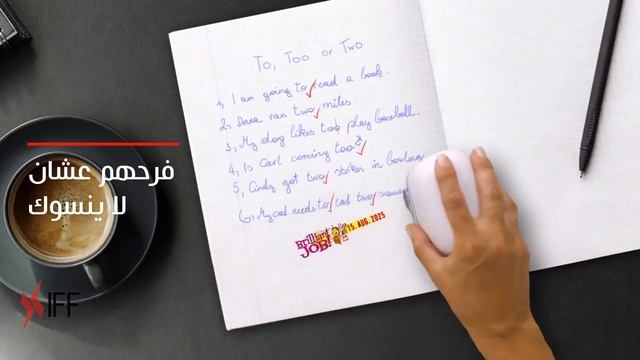 To, Too or Two
1, I am going to read a book.
2, Dave ran two miles.
3, My dog likes too play baseball.
4, Is Carl coming too?
5, Cindy got two strikes in bowling
6, My cat needs to eat two
Brilliant JOB! 15. AUG. 2025
فرحهم عشان
لا ينسوك
IFF